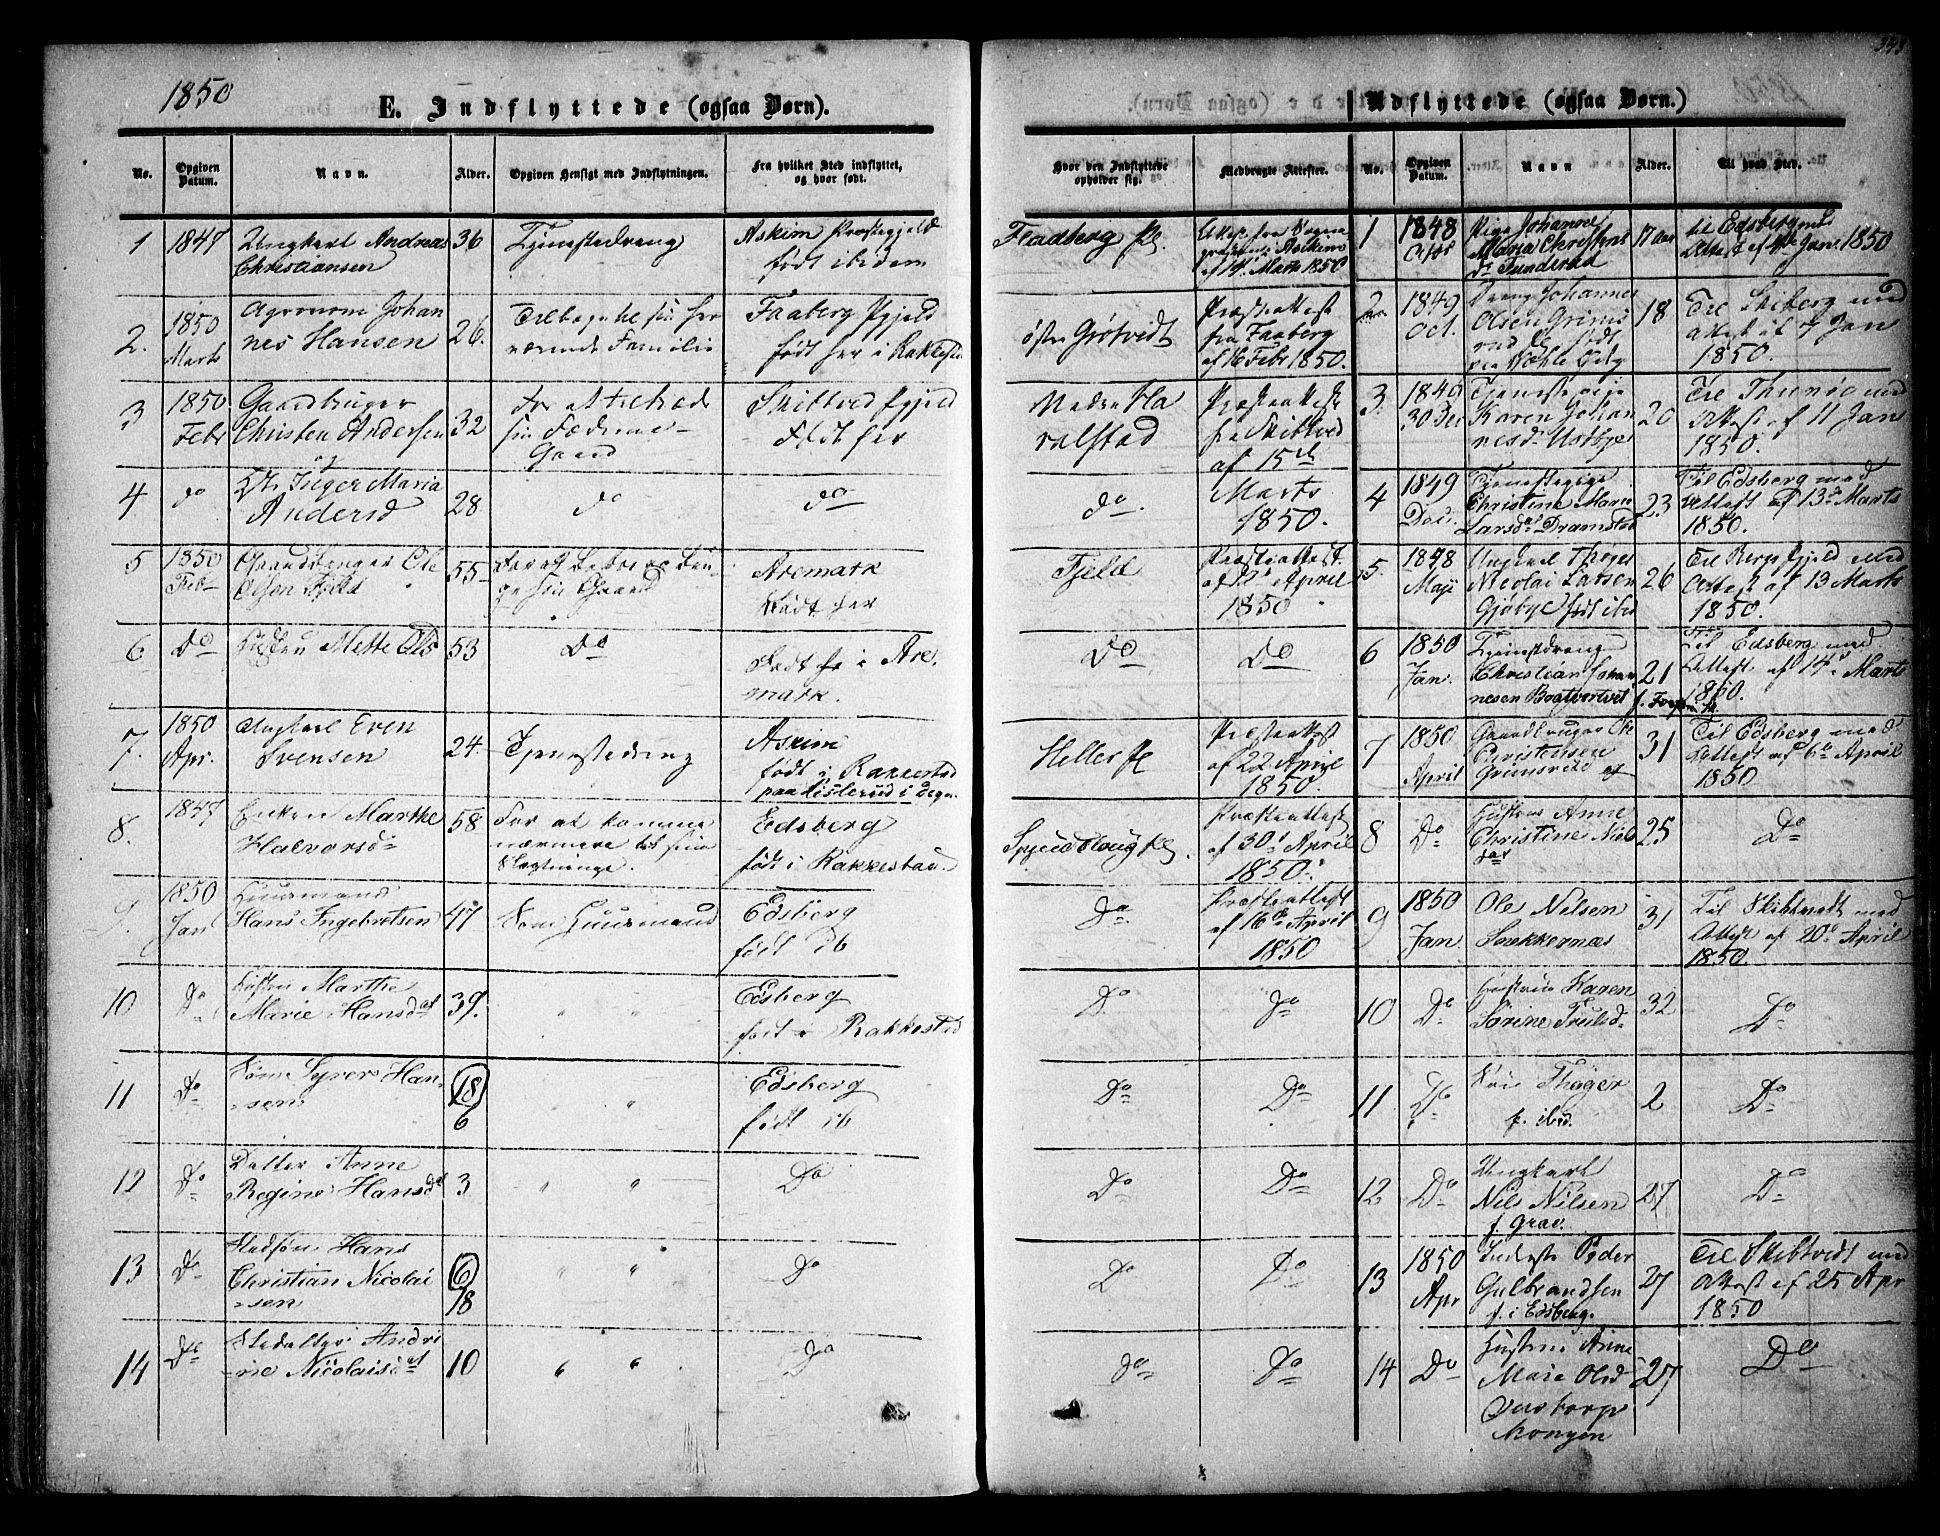 343
1850
E. Indflyttede (ogsaa Børn).
Udflyttede (ogsaa Børn.)
No.
Opgiven Datum.
Navn.
Alder.
Opgiven Hensigt med Indflytningen.
Fra hvilket Sted indflyttet, og hvor født.
Hvor den Indflyttede opholder sig.
Medbragte Attester.
No.
Opgiven Datum.
Navn
Alder.
Til hvad Sted.
1
1847
Ungkarl Andreas
Christiansen
36
Tjenestedreng
Askim Præstegjeld
født ibidem
Fladberg pl.
af 14 Marts 1850
2.
1850
Marts
Agronom Johan
nes Hansen
26.
Tilbage til sin her
værende Familie
Faaberg Pgjeld
født her i Rakkestad
østre Grøtvedt
Præsteattest
fra Faaberg
af 16 Febr 1850.
3
1850
Febr
Gaardbruger
Christen Andersen
32
For at tiltræde
sin Fædrene-
Gaard
Skibtved Pgjeld
Født her
Nedre Ha
ralstad
Præsteattest
fra Skibtved
af 15de
Marts
1850.
4
do
Inger Maria
Andersd
28
do
do
do.
5
1850
Feb
Gaardbruger Ole
Olsen Fjeld
55
sin Gaard
Aremark
Født her
Fjeld
Præsteattest
af 12te April
1850
6
Do
Hustru Mette Olsd
53
Do
Født her i Are
mark.
Do
Do
7.
1850
Apr.
Ungkarl Even
Svensen
24.
Tjenestedreng
Askim
født i Rakkestad
paa Listerud i Degn.
Heller pl
Præsteattest
af 22 April
1850.
8.
1847
Enken Marthe
Halvorsd
58
For at komme
nærmere til sine
Slægtninge.
Edsberg
født i Rakkestad
Præsteattest
af 30d April
1850.
9.
1850
Jan
Huusmand
Hans Ingebretsen
47
Som Huusmand
Edsberg
født ib
Do
Præsteattest
af 16de April
1850
10
Do
Hustru Marthe
Marie Hansdat
39.
" "
Edsberg
født i Rakkestad
Do
Do
11
Do
Søn Syver Han-
sen
18
6
"
Edsberg
født ib
Do
Do
12
Do
Datter Anne
Regine Hansdat
3
" "
Do
Do
Do
13
Do
Stedsøn Hans
Christian Nicolai
sen
6
18
" "
Do
Do
Do
14
Do
Steddatter Andri
ne Nicolaisdat
10
" "
Do
Do
Do
1
1848
Octbr
Pige Johanne
Maria Christens
dr Tunderud
17 Aar
til Edsberg med
Attest af 4de Jan 1850
2
1849
Oct.
Dreng Johannes
Olsen Grims
rud
18
Til Skiberg med
Attest af 7 Jan
1850.
3.
1849
30 Dec
Tjenestepige
Karen Johan
nesd: Ustbye
20
Til Thunøe med
Attest af 11 Jan
1850.
4
1849
Dec.
Tjenestepige
Christine Marie
Larsdat Dramstad
23
Til Edsberg med
Attest af 13de Marts
1850.
5.
1848
Maji
Ungkarl Thøger
Nicolai Larsen
Gjøbye født ibid
26
Til Berg Pgjeld med
Attest af 13 Marts
1850.
6
1850
Jan.
Tjenestdreng
Christian Johan
nesen Bratvortvet
21
Til Edsberg med
Attest af 14de Marts
1850.
7
1850
April
Gaardbruger Ole
Christensen
Grimsrud
31
Til Edsberg med
Attest af 6te April
1850
8
Do
Hustru Anne
Christine Niels
dat
25
Do
9
1850
Jan
Ole Nilsen
Snekkernæs
31
Til Skibtvedt med
Attest af 20de April
1850.
10
Do
Hustru Karen
Sørine Trulsd
32
Do
11
Do
Søn Thøger
f. ibid.
2
Do
12
Do
Ungkarl
Nils Nilsen
f. Grav.
27
Do
13
1850
Apr
Inderste Peder
Gulbrandsen
f. i Edsberg.
27
Til Skibtvedt med
Attest af 25 Apr
1850
14
Do
Hustru Anne
Marie Olsd
27
Do